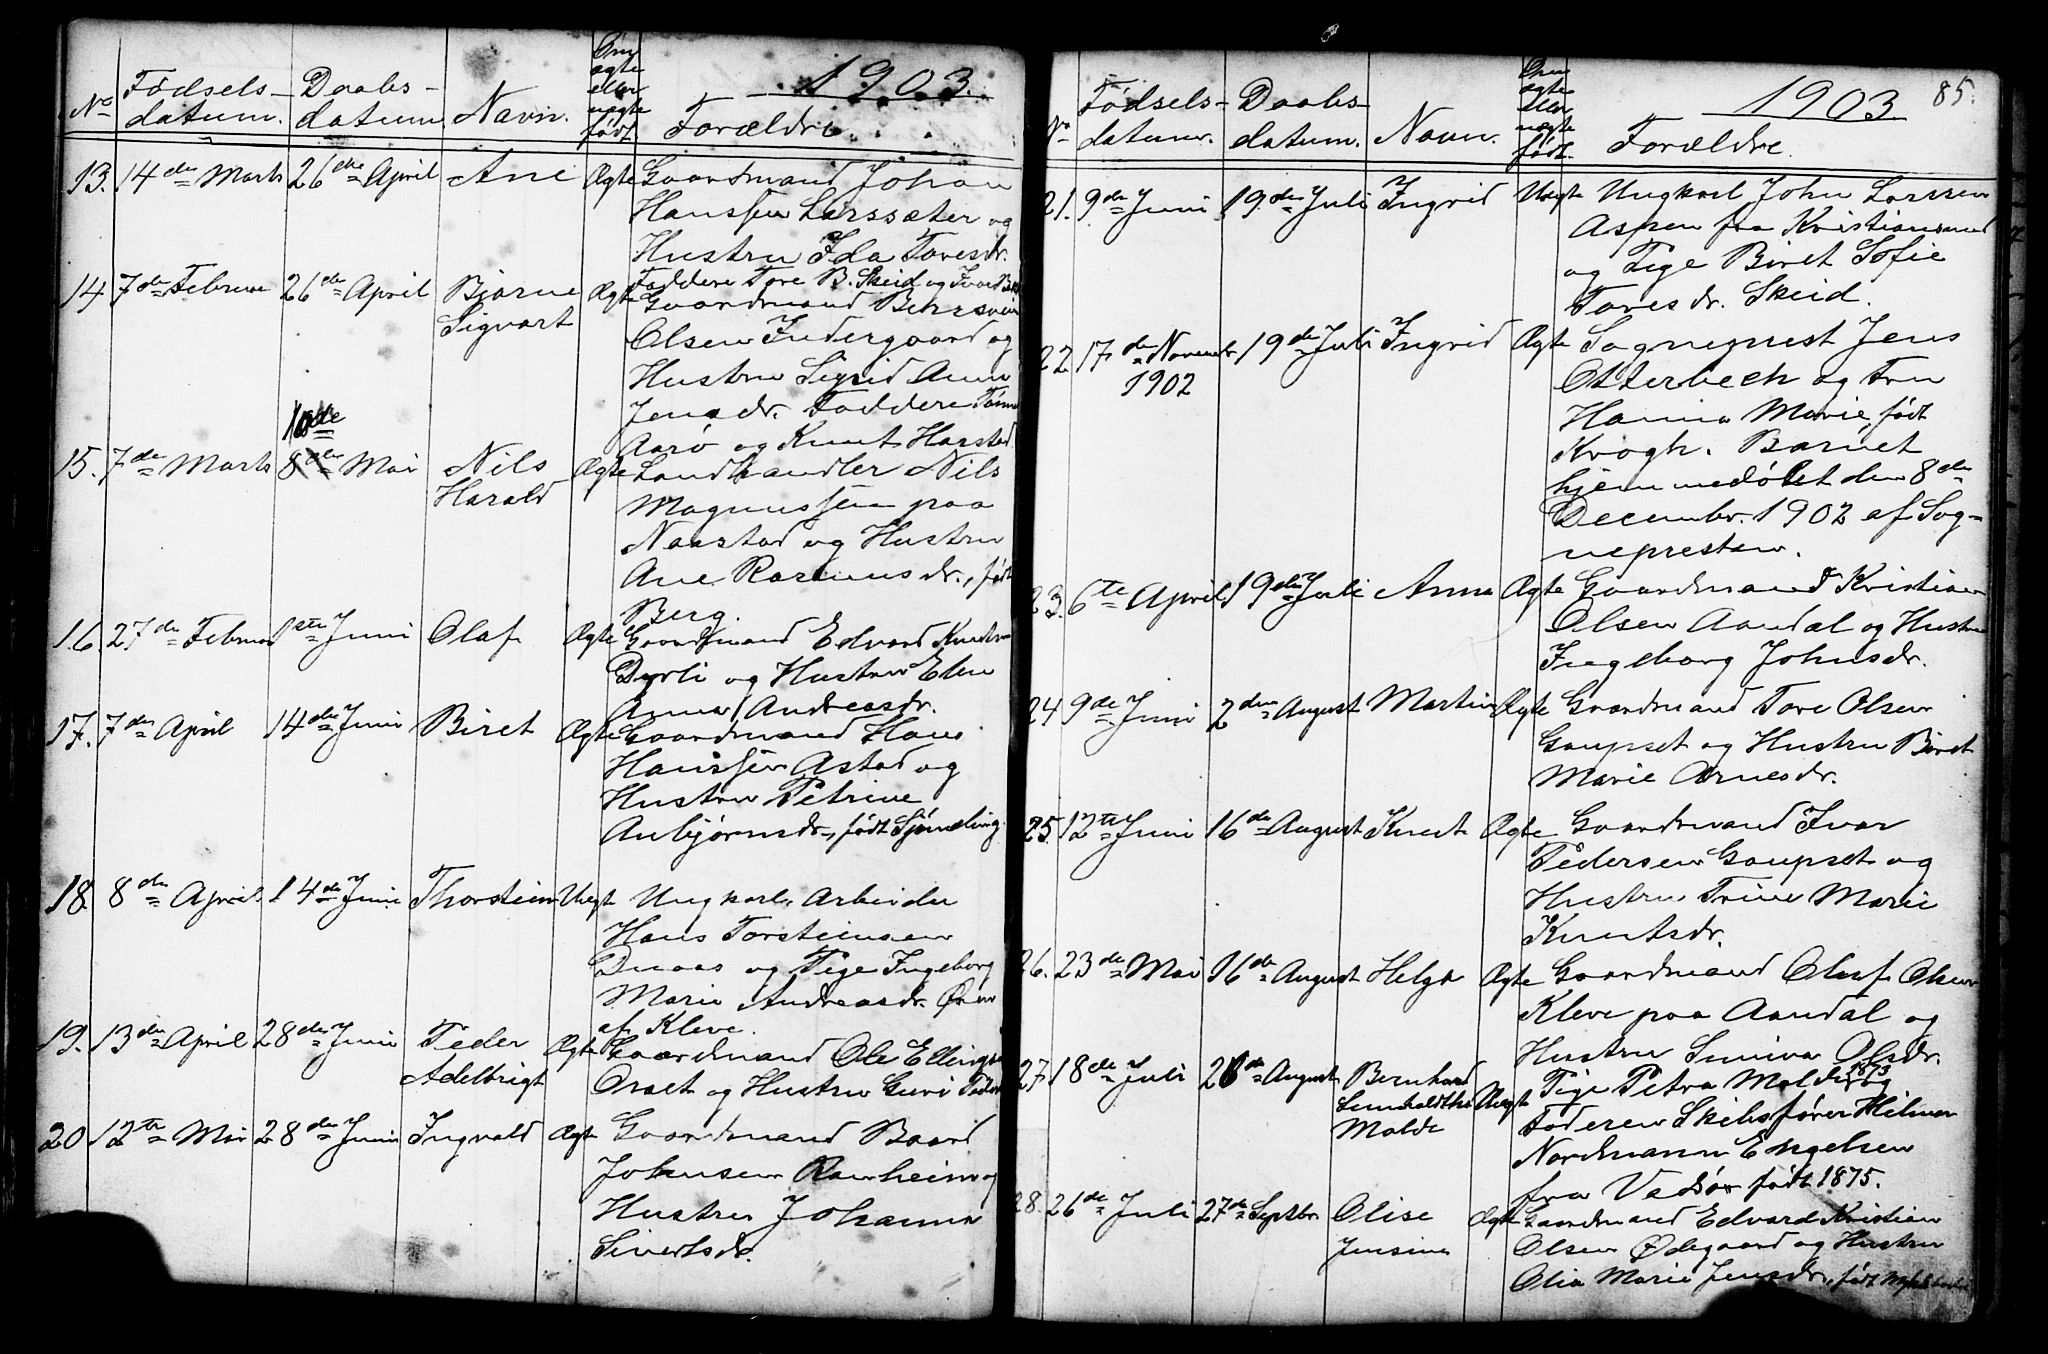 1903.
No Fødsels- datum. Daabs- datum. Navn. Om ægte eller uægte født. Forældre.
13. 14de Marts 26de April Ane Ægte Gaardmand Johan
Hanssen Larssæter og
Hustru Ida Toresdr.
Faddere Tore B. Skeid og Ivar
14 7de Februar 26de April Bjarne Sigvart Ægte Gaardmand Berrsvein
Olsen Indergaard og
Hustru Sigrid Anna
Jensdr. Faddere
Aarø og Knut Harstad
15. 7de Marts 10de 8de Mai Nils Harald Ægte Landhandler Nils
Magnussen paa
Naastad og Hustru
Ane Rasmusdr., født
Berg.
16. 27de Februar 1ste Juni Olaf Ægte Gaardmand Edvard Knutsen
Dyrli og Hustru Elen
Anna Andreasdr.
17. 7de April 14de Juni Biret Ægte Gaardmand Hans
Hanssen Astad og
Hustru Petrine
Anbjørnsdr., født Sjømæling.
18. 8de April 14de Juni Thorstein Uægt Ungkarl, Arbeider
Hans Torsteinsen
og Pige Ingeborg
Marie Andreasdr.
af Kleve.
19. 13de April 28de Juni Peder Adelbrigt Ægte Gaardmand Ole Ellingsen
Orset og Hustru Guri
20 12te Mai 28de Juni Ingvald Ægte Gaardmand Baard
Johnsen Ranheim og
Hustru Johanna
Sivertsdr.
1903. 85.
No Fødsels- datum. Daabs- datum. Navn. Om ægte eller uægte født. Forældre.
21. 9de Juni 19de Juli Ingrid Uægte Ungkarl John Larssen
Aspen fra Kristianssund
og Pige Biret Sofie
Toresdr. Skeid.
22 17de Novembr 1902 19de Juli Ingrid Ægte Sogneprest Jens
Otterbech og Fru
Hanna Marie, født
Krogh. Barnet
hjemmedøbt den 8de
Decembr. 1902 af Sog-
nepresten.
23. 6te April 19de Juli Anna Ægte Gaardmand Kristian
Olsen Aandal og Hustru
Ingeborg Johnsdr.
24 9de Juni 2den August Martin Ægte Gaardmand Tore Olsen
Gaupset og Hustru Biret
Marie Arnesdr.
25. 12te Juni 16de August Knut Ægte Gaardmand Ivar
Pedersen Gaupset og
Hustru Trine Marie
Knutsdr.
26. 23de Mai 16de August Helga Ægte Gaardmand Oluf Olsen
Kleve paa Aandal og
Hustru Sunniva Olsdr.
27. 18de Juli 26de August Bernhard Molde Uægt Pige Petra Molde, 1873 og
Faderen Skibsfører Hilmar
Nordmann Engelsen
fra Vadsø født 1875.
28. 26de Juli 27de Septbr. Olise Jensine Ægte Gaardmand Edvard Kristian
Olsen Ødegaard og Hustru
Olia Marie Jensdr., født